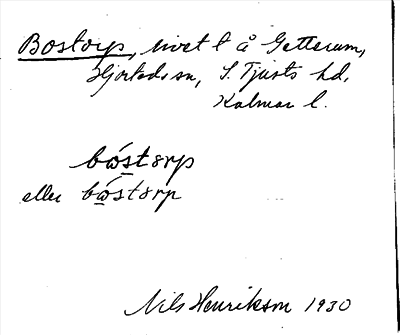 Bostorp, rivet t å Getterum,
Hjorteds sn, S. Tjusts hd,
Kalmar l.
bǿstorp
eller bǿstorp
Nils Henrikson 1930